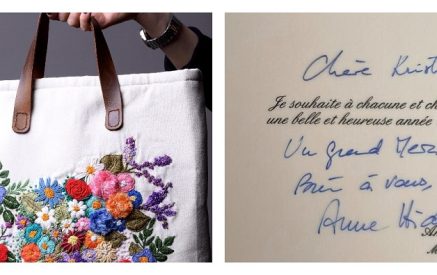 Chère Krist
Je souhaite à chacune et ch
une belle et heureuse année
Un grand Merc
Bien à vous,
Anne Hid